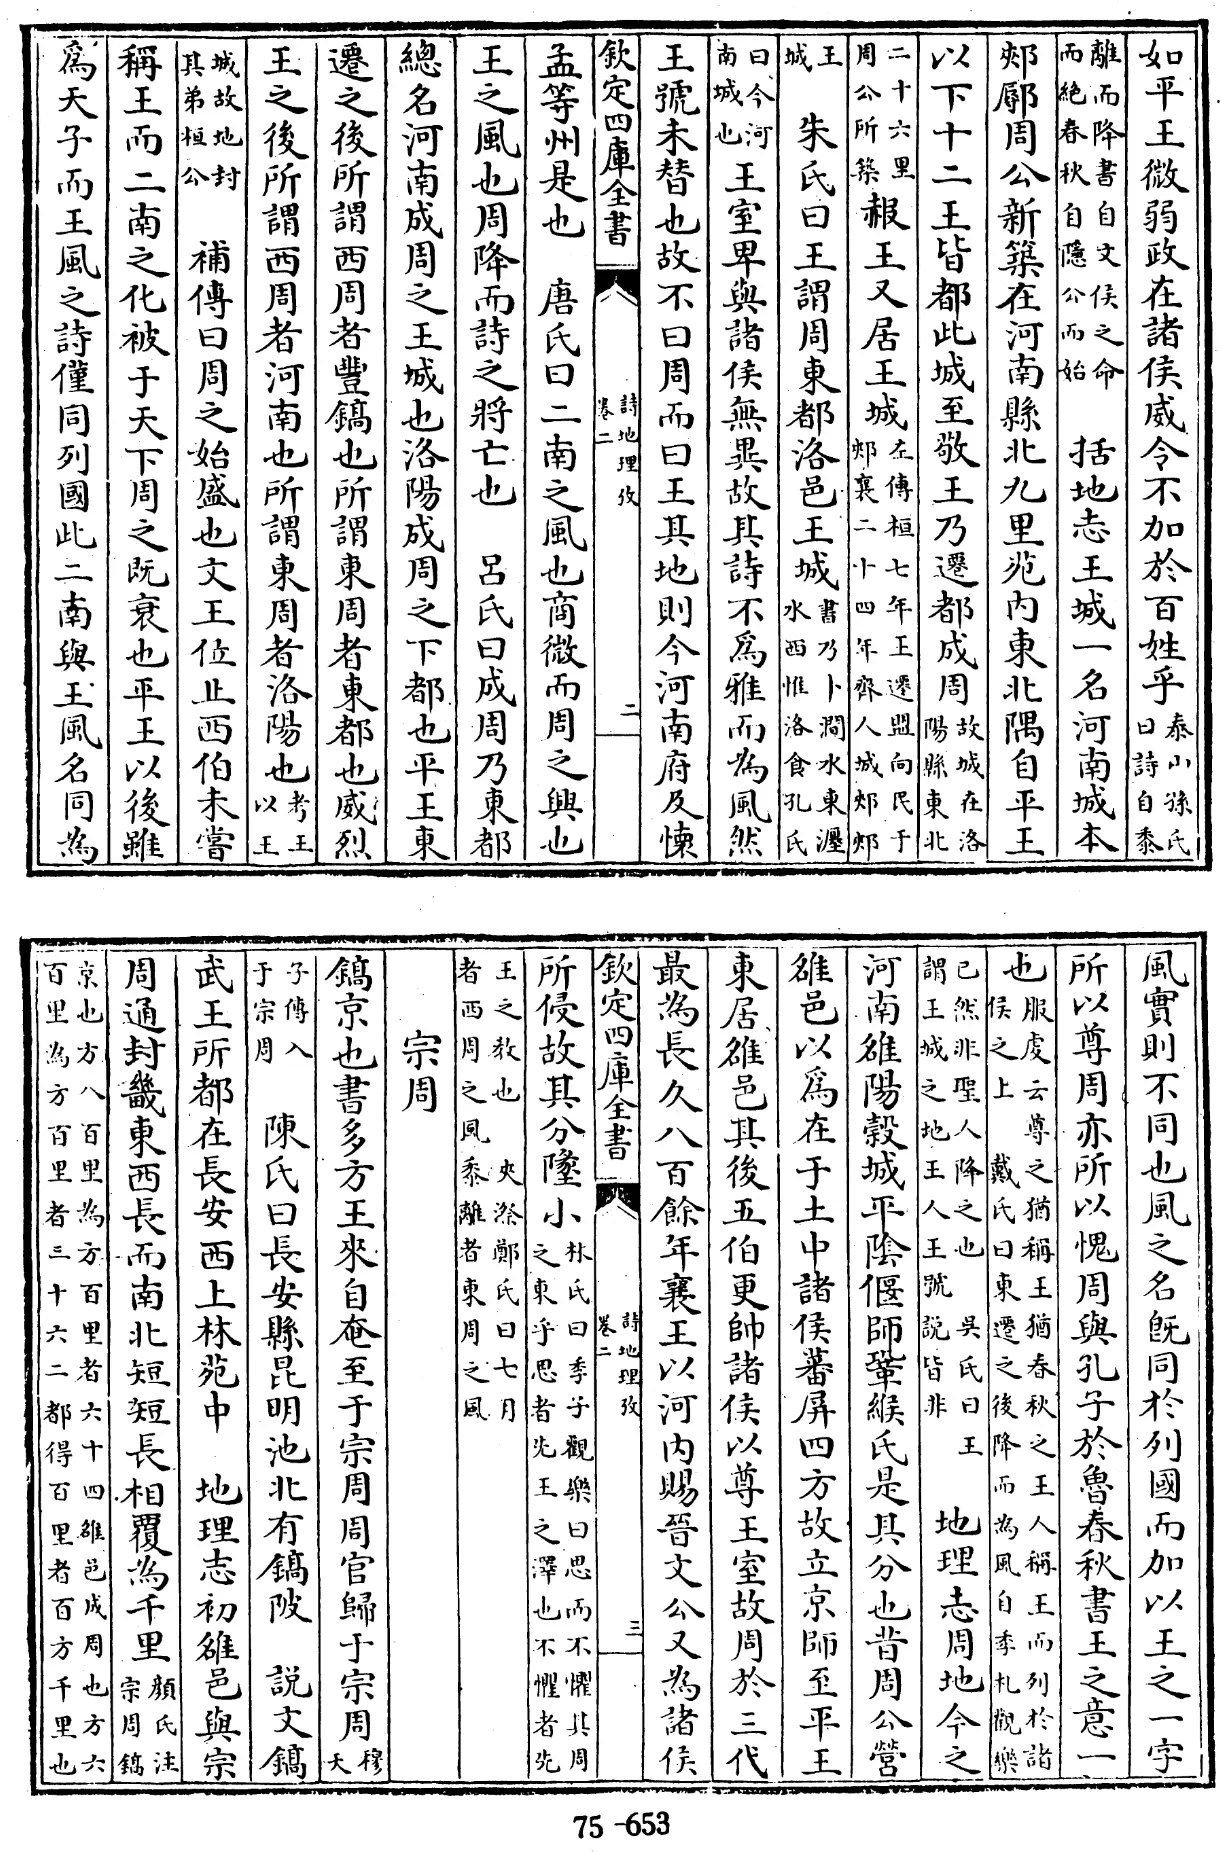 如平王微弱政在諸侯威令不加於百姓乎泰山孫氏曰詩自黍
離而降書自文侯之命而絶春秋自隱公而始　括地志王城一名河南城本
郟鄏周公新築在河南縣北九里苑内東北隅自平王
以下十二王皆都此城至敬王乃遷都成周故城在洛陽縣東北
二十六里周公所築赧王又居王城左傳桓七年王遷盟向民于郟襄二十四年齊人城郟郟
王城　朱氏曰王謂周東都洛邑王城書乃卜澗水東瀍水西惟洛食孔氏
曰今河南城也王室卑與諸侯無異故其詩不爲雅而為風然
王號未替也故不曰周而曰王其地則今河南府及懐
欽定四庫全書　詩地理攷卷二　二
孟等州是也　唐氏曰二南之風也商微而周之興也
王之風也周降而詩之將亡也　呂氏曰成周乃東都
總名河南成周之王城也洛陽成周之下都也平王東
遷之後所謂西周者豐鎬也所謂東周者東都也威烈
王之後所謂西周者河南也所謂東周者洛陽也考王以王
城故地封其弟桓公　補傳曰周之始盛也文王位止西伯未嘗
稱王而二南之化被于天下周之既衰也平王以後雖
爲天子而王風之詩僅同列國此二南與王風名同為
風實則不同也風之名旣同於列國而加以王之一字
所以尊周亦所以愧周與孔子於魯春秋書王之意一
也服虔云尊之猶稱王猶春秋之王人稱王而列於諸侯之上　戴氏曰東遷之後降而為風自季札觀樂
已然非聖人降之也　吳氏曰王謂王城之地王人王號説皆非　地理志周地今之
河南雒陽穀城平陰偃師鞏緱氏是其分也昔周公營
雒邑以爲在于土中諸侯蕃屏四方故立京師至平王
東居雒邑其後五伯更帥諸侯以尊王室故周於三代
最為長久八百餘年襄王以河内賜晉文公又為諸侯
欽定四庫全書　詩地理攷卷二　三
所侵故其分墬小林氏曰季子觀樂曰思而不懼其周之東乎思者先王之澤也不懼者先
王之教也　夾漈鄭氏曰七月者西周之風黍離者東周之風
宗周
鎬京也書多方王來自奄至于宗周周官歸于宗周穆天
子傳入于宗周　陳氏曰長安縣昆明池北有鎬陂　説文鎬
武王所都在長安西上林苑中　地理志初雒邑與宗
周通封畿東西長而南北短短長相覆為千里顏氏注宗周鎬
京也方八百里為方百里者六十四雒邑成周也方六百里為方百里者三十六二都得百里者百方千里也
75-653